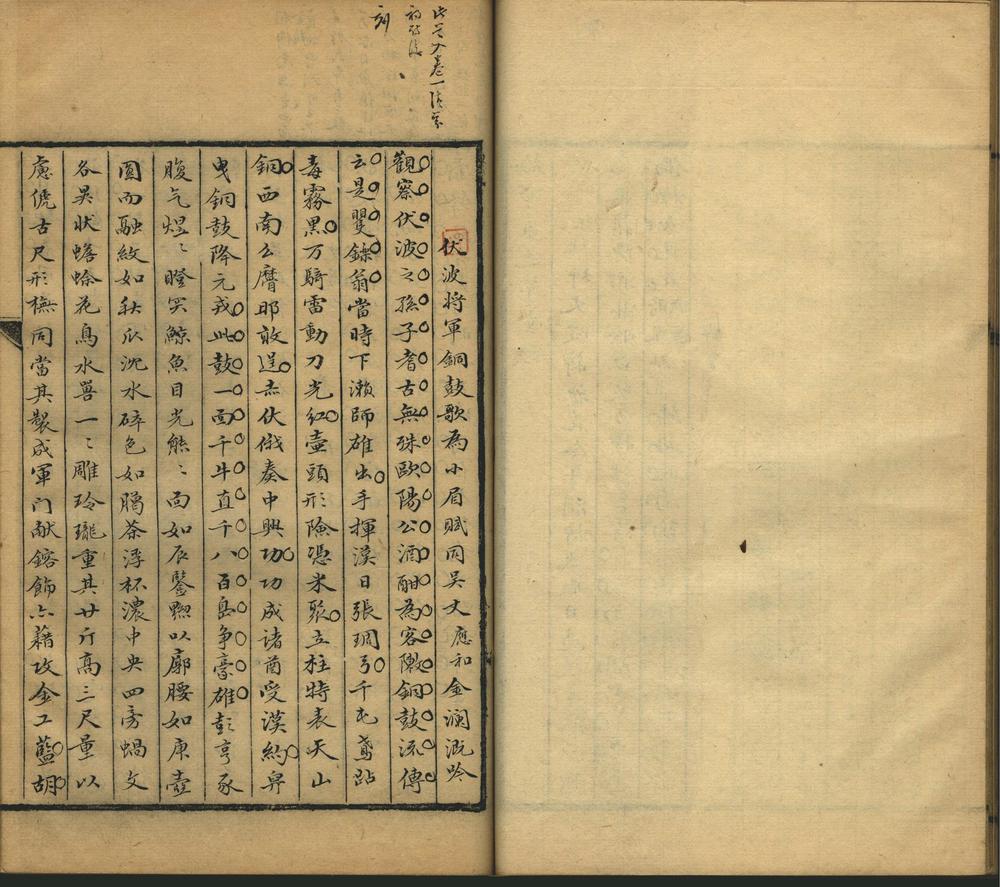 伏波将軍銅鼓歌為小眉賦同吴丈應和金瀾溉吟
觀察伏波之孫子耆古無殊歐陽公酒酣為客隞銅鼓流傳
云是矍鑠翁當時下瀨師雄出手揮漠日張琱弓千屯鳶跕
毒霧黑万騎雷動刀光紅壺頭形險憑米聚立柱特表天山
銅西南么麿耶敢逞赤伏俄奏中興功功成諸酋受漢約舁
曳銅鼓降元戎此鼓一面千牛直千八百嵒争豪雄彭亨豕
腹气煜〻瞪冥鯨魚目光熊〻面如辰鑒黟以廓腰如康壺
圓而融紋如秋瓜沈水碎色如鵑茶浮杯濃中央四旁蝸文
各吴状蟾蜍花鳥水兽一〻雕玲瓏重其廿斤高三尺量以
慮俿古尺形橅同當其製成軍门献鎔飾亦藉攻金工藍胡
此是入卷一
刻